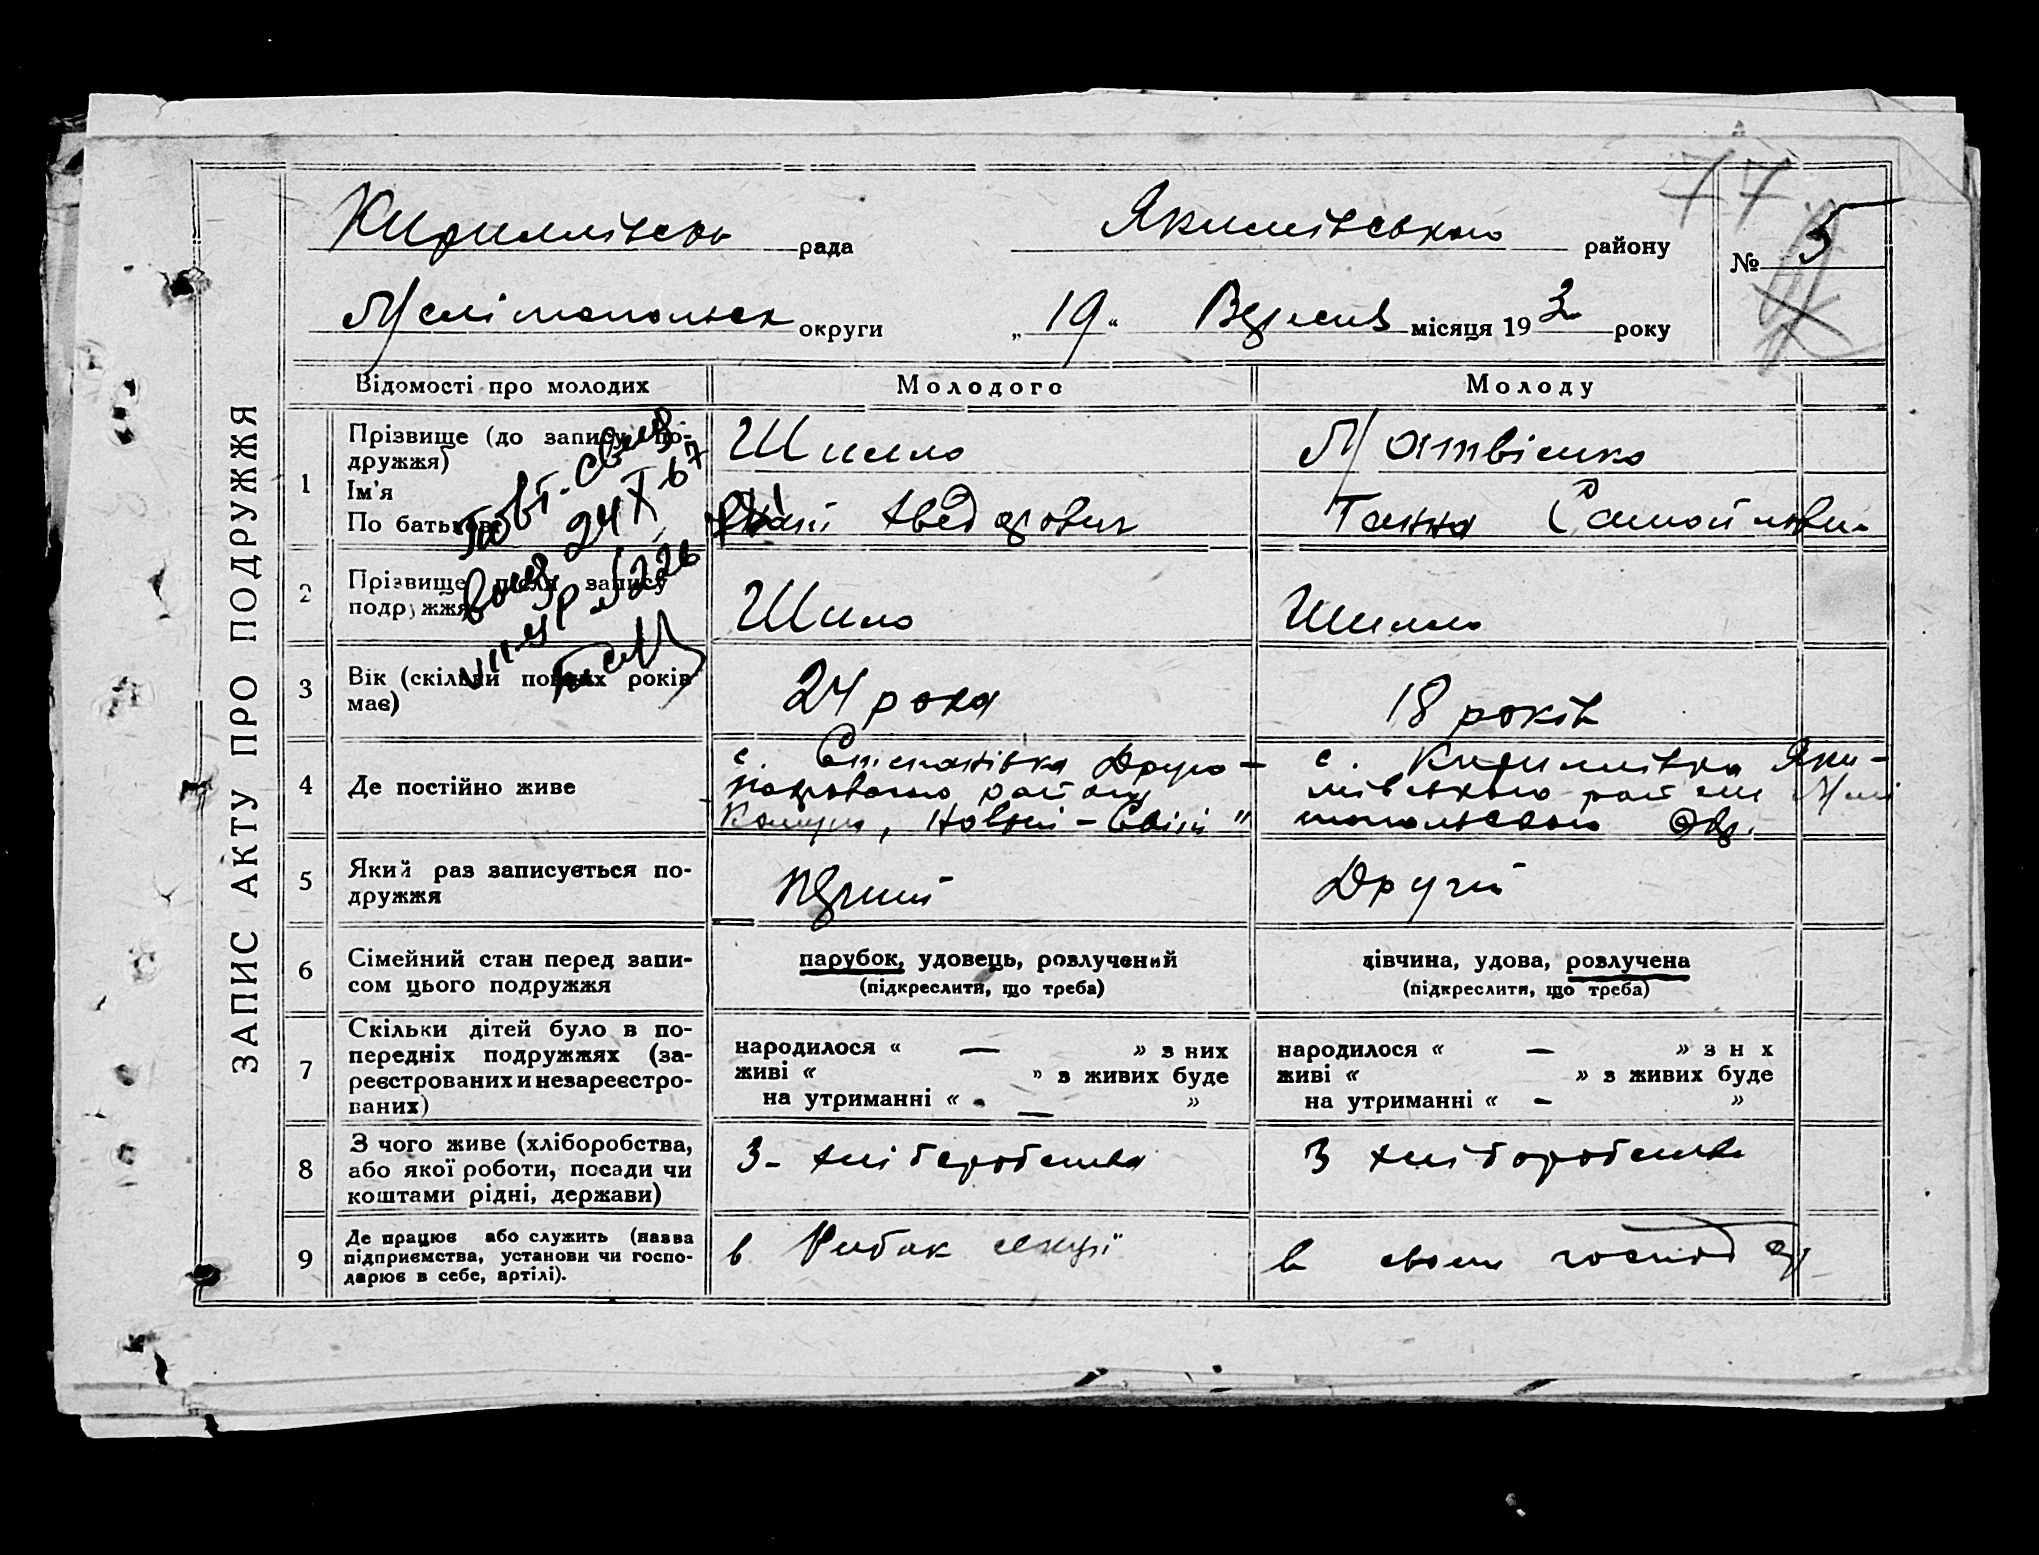 ЗАПИС АКТУ ПРО ПОДРУЖЖЯ
77
Кириллівська рада Якимівського району № 5
Мелітопольск округи „ 19 “ Вересня місяця 193 року
Відомості про молодих Молодого Молоду
1 Прізвище (до запису подружжя) Шилло Матвієнко
Ім'я
По батькові Федорович Ганна Самойлівн.
Повт. свид
24 X 67
№ 226
2 Прізвище після запису подружжя Шило Шилло
3 Вік (скільки повних років має) 24 рока 18 років
4 Де постійно живе
с. Степанівка Друго-
покровського району
Комуна „Новий-Світ"
с. Кирилливка Яки-
мівського район Мелі
топольского Окр.
5 Який раз записується по-
дружжя Перший Другий
6 Сімейний стан перед запи-
сом цього подружжя
парубок, удовець, розлучений
(підкреслити, що треба)
дівчина, удова, розлучена
(підкреслити, що треба)
7 Скільки дітей було в по-
передніх подружжях (за-
реєстрованих и незареєстро-
ваних)
народилося « — » з них
живі « » з живих буде
на утриманні « — »
народилося « — » з н х
живі « » з живих буде
на утриманні « — »
8 З чого живе (хліборобства,
або якої роботи, посади чи
коштами рідні, держави)
З- хліборобства
З хліборобства
9 Де працює або служить (назва
підприємства, установи чи госпо-
дарює в себе, артілі).
в Рибак секції
в своєм господ